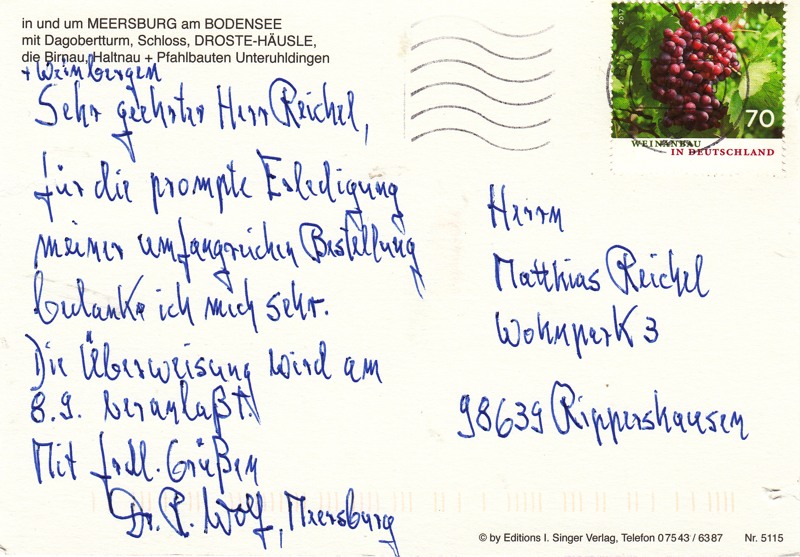 in und um MEERSBURG am BODENSEE
mit Dagobertturm, Schloss, DROSTE-HÄUSLE,
die Birnau, Haltnau + Pfahlbauten Unteruhldingen
+ Weinbergen
Sehr geehrter Herr Reichel,
für die prompte Erledigung
meiner umfangreichen Bestellung
bedanke ich mich sehr.
Die Überweisung wird am
8.9. veranlaßt.
Mit frdl. Grüßen
Dr. P. Wolf, Meersburg
2017
70
WEINANBAU
IN DEUTSCHLAND
Herrn
Matthias Reichel
Wohnpark 3
98639 Rippershausen
© by Editions I. Singer Verlag, Telefon 0 75 43 / 63 87 Nr. 5115